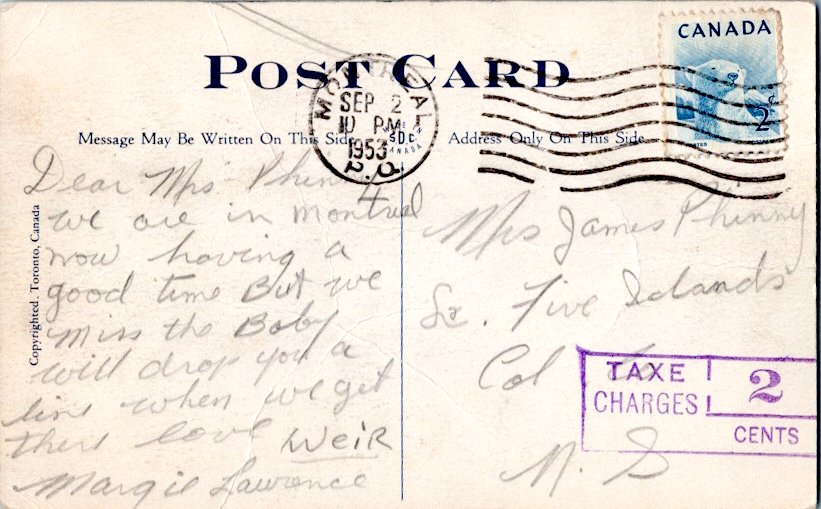 CANADA
2
POST CARD
MONTREAL
SEP 2
10 PM
1953
P.Q.
MADE IN
5¢
CANADA
Message May Be Written On This Side
Address Only On This Side
Copyrighted. Toronto, Canada
Dear Mrs Phinny
we are in montreal
now having a
good time But we
miss the Baby
will drop you a
line when we get
there love WEIR
Margie Lawrence
Mrs James Phinny
Five Islands
Col Co
N. S
TAXE
CHARGES
2
CENTS